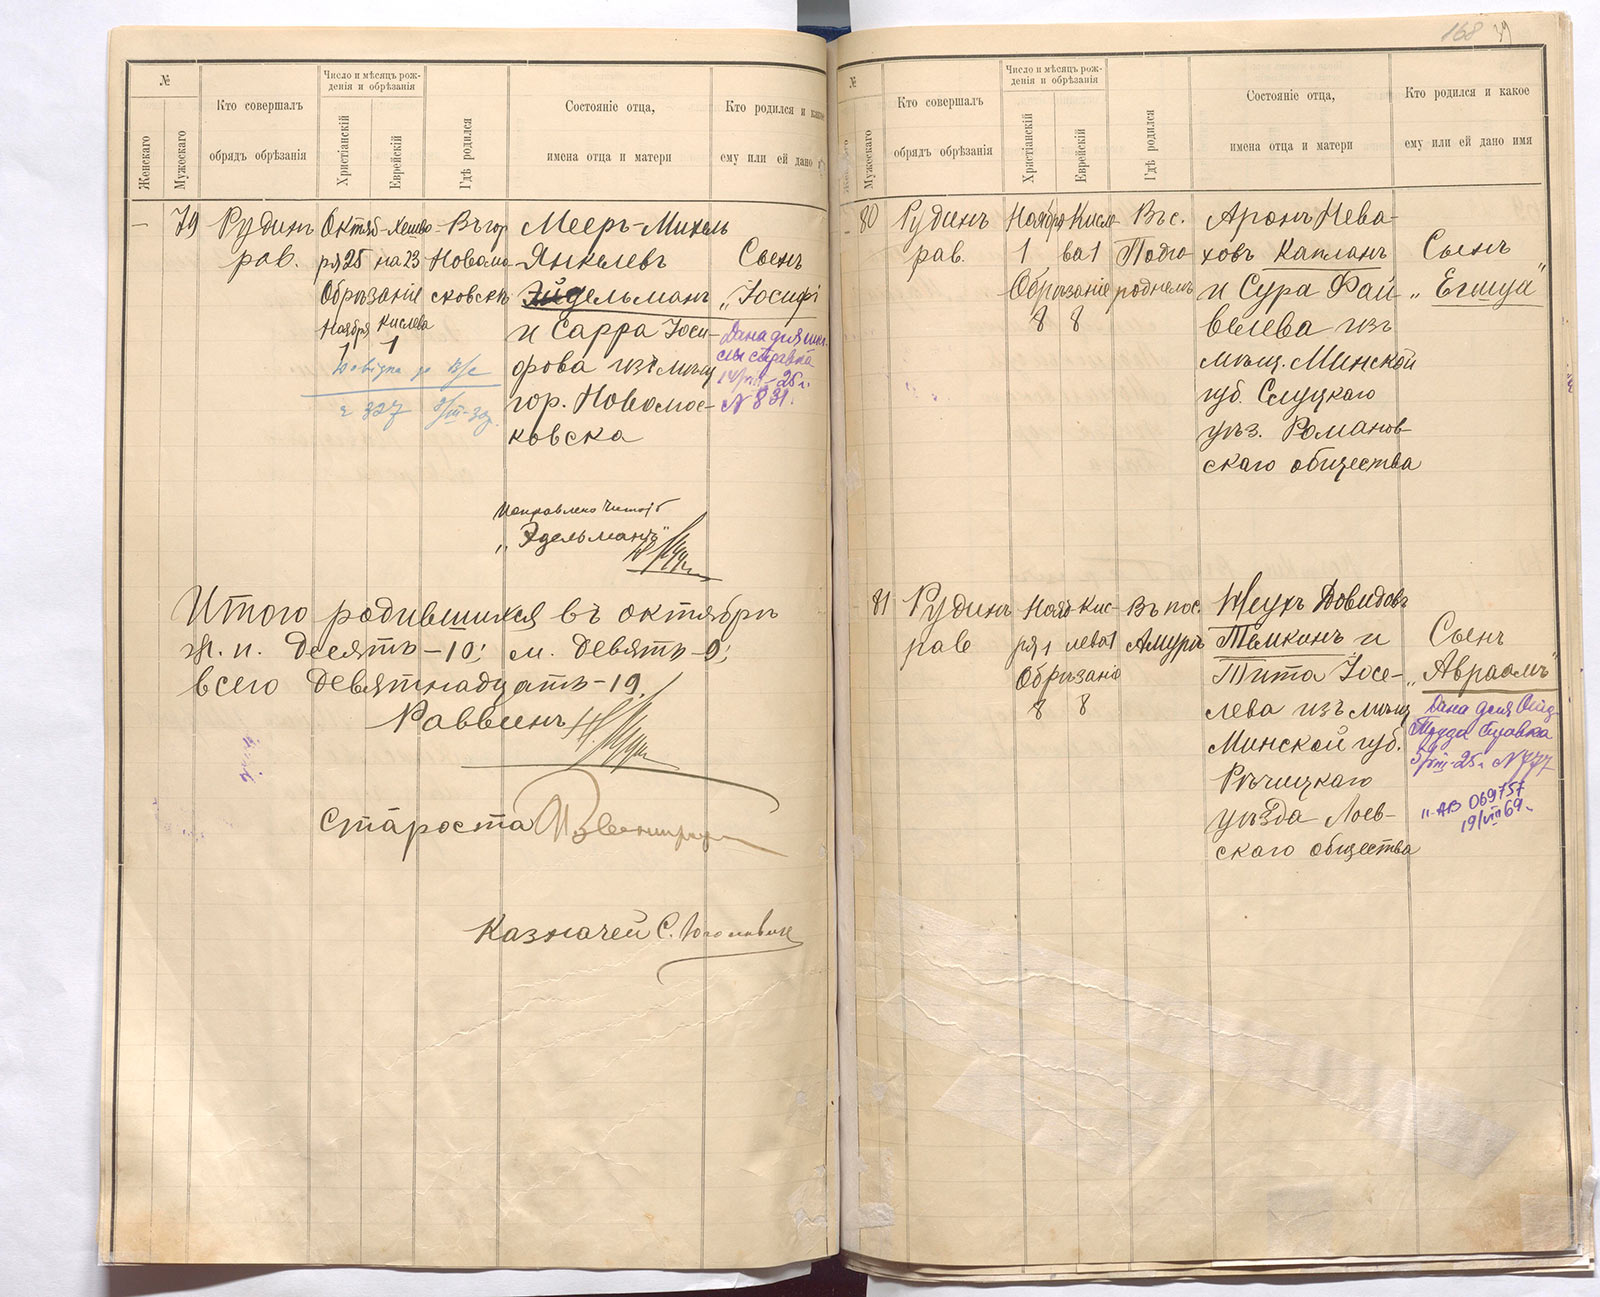 №
Женскаго
Мужескаго
Кто совершалъ
обрядъ обрѣзанія
Число и мѣсяцъ рож-
денія и обрѣзанія
Христіанскій
Еврейскій
Гдѣ родился
Состояніе отца,
имена отца и матери
Кто родился и какое
ему или ей дано
– 79
Рудинъ
рав.
Октяб-
ря 25
Обрѣзаніе
Ноября
1
Хешво-
на 23
Кислева
1
Въ гор
Новомо-
сковскѣ
Мееръ-Михель
Янкелевъ
Эйдельманъ
и Сарра Іоси-
фова изъ мѣщ
гор. Новомос-
ковска
Сынъ
„Іосифъ
Дана для шко-
лы справка
14/VIII-25 г.
N 831.
327
„Эдельманъ"
Итого родившихся въ октябрѣ
ж. п. десять – 10; м. девять – 9;
всего девятнадцать – 19.
Раввинъ
Староста
Казначей С.
168
№
Женскаго
Мужескаго
Кто совершалъ
обрядъ обрѣзанія
Число и мѣсяцъ рож-
денія и обрѣзанія
Христіанскій
Еврейскій
Гдѣ родился
Состояніе отца,
имена отца и матери
Кто родился и какое
ему или ей дано имя
– 80
Рудинъ
рав.
Ноября
1
Обрѣзаніе
8
Кисле
ва 1
8
Въ с.
Подго
роднемъ
Аронъ Нева-
ховъ Капланъ
и Сура Фай-
велева изъ
мѣщ. Минской
губ. Слуцкаго
уѣз. Романов-
скаго общества
Сынъ
„Егошуа"
81
Рудинъ
рав
Нояб-
ря 1
Обрѣзаніе
8
Кис-
лева 1
8
Въ пос.
Амурѣ
Довидовъ
Темкинъ и
Тита Іосе-
лева изъ мѣщ
Минской губ.
Рѣчицкаго
уѣзда Лоев-
скаго общества
Сынъ
„Авраамъ"
Дана для
справка
N 777
АВ 069757
19/VIII 69